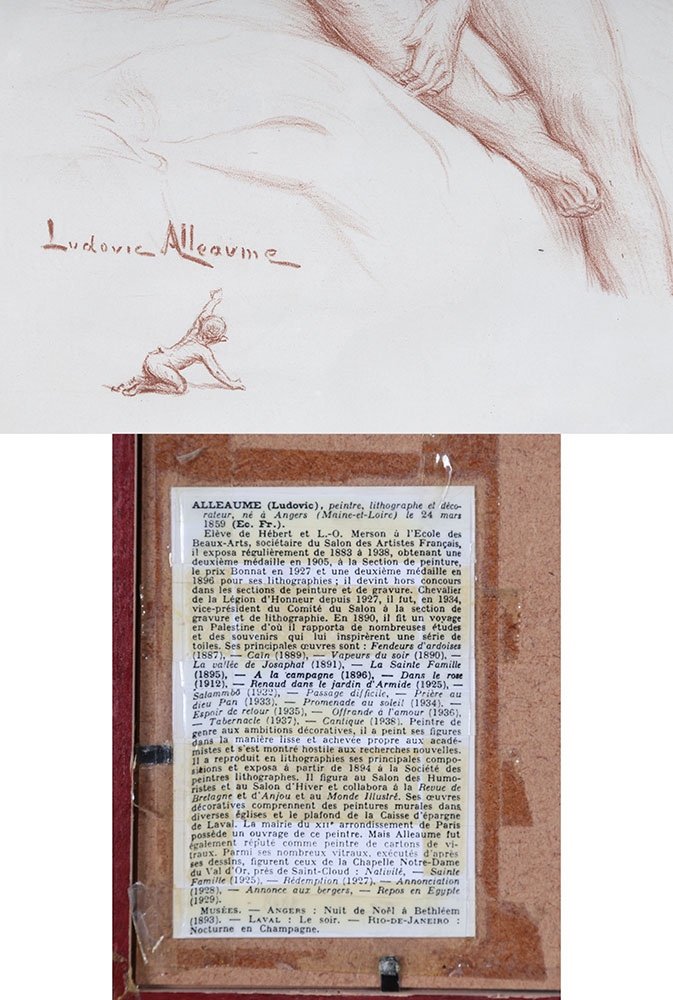 Ludovic Alleaume
ALLEAUME (Ludovic), peintre, lithographe et déco-
rateur, né à Angers (Maine-et-Loire) le 24 mars
1859 (Ec. Fr.).
Elève de Hébert et L.-O. Merson à l'Ecole des
Beaux-Arts, sociétaire du Salon des Artistes Français,
il exposa régulièrement de 1883 à 1938, obtenant une
deuxième médaille en 1905, à la Section de peinture,
le prix Bonnat en 1927 et une deuxième médaille en
1896 pour ses lithographies ; il devint hors concours
dans les sections de peinture et de gravure. Chevalier
de la Légion d'Honneur depuis 1927, il fut, en 1934,
vice-président du Comité du Salon à la section de
gravure et de lithographie. En 1890, il fit un voyage
en Palestine d'où il rapporta de nombreuses études
et des souvenirs qui lui inspirèrent une série de
toiles. Ses principales œuvres sont : Fendeurs d'ardoises
(1887), — Caïn (1889), — Vapeurs du soir (1890), —
La vallée de Josaphat (1891), — La Sainte Famille
(1895), — A la campagne (1896), — Dans le rose
(1912), — Renaud dans le jardin d'Armide (1925), —
Salammbô (1932), — Passage difficile, — Prière au
dieu Pan (1933). — Promenade au soleil (1934). —
Espoir de retour (1935), — Offrande à l'amour (1936),
— Tabernacle (1937). — Cantique (1938). Peintre de
genre aux ambitions décoratives, il a peint ses figures
dans la manière lisse et achevée propre aux acadé-
mistes et s'est montré hostile aux recherches nouvelles.
Il a reproduit en lithographies ses principales compo-
sitions et exposa à partir de 1894 à la Société des
peintres lithographes. Il figura au Salon des Humo-
ristes et au Salon d'Hiver et collabora à la Revue de
Bretagne et d'Anjou et au Monde Illustré. Ses œuvres
décoratives comprennent des peintures murales dans
diverses églises et le plafond de la Caisse d'épargne
de Laval. La mairie du XIIe arrondissement de Paris
possède un ouvrage de ce peintre. Mais Alleaume fut
également réputé comme peintre de cartons de vi-
traux. Parmi ses nombreux vitraux, exécutés d'après
ses dessins, figurent ceux de la Chapelle Notre-Dame
du Val d'Or, près de Saint-Cloud : Nativité, — Sainte
Famille (1925), — Rédemption (1927). — Annonciation
(1928), — Annonce aux bergers, — Repos en Egypte
(1929).
MUSÉES. — ANGERS : Nuit de Noël à Bethléem
(1893). — LAVAL : Le soir. — RIO-DE-JANEIRO :
Nocturne en Champagne.